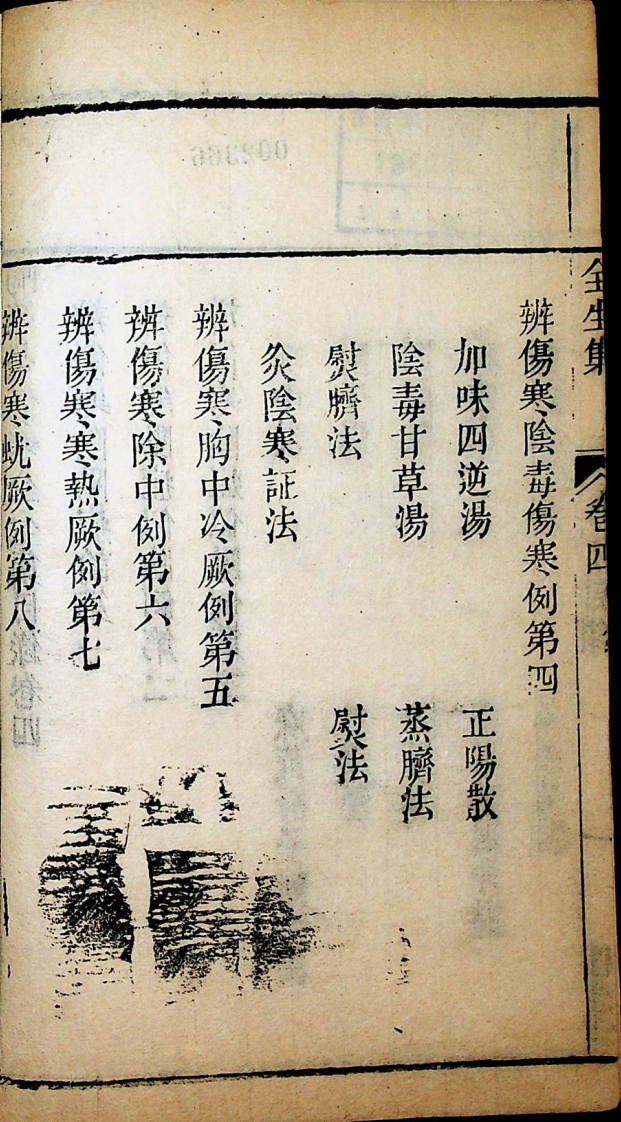 全生集 卷四
辨傷寒陰毒傷寒例第四
加味四逆湯 正陽散
陰毒甘草湯 蒸臍法
熨臍法 熨法
灸陰寒証法
辨傷寒胸中冷厥例第五
辨傷寒除中例第六
辨傷寒寒熱厥例第七
辨傷寒蚘厥例第八